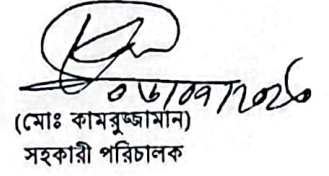 ০৬/০৭/২০২০
(মোঃ কামরুজ্জামান)
সহকারী পরিচালক